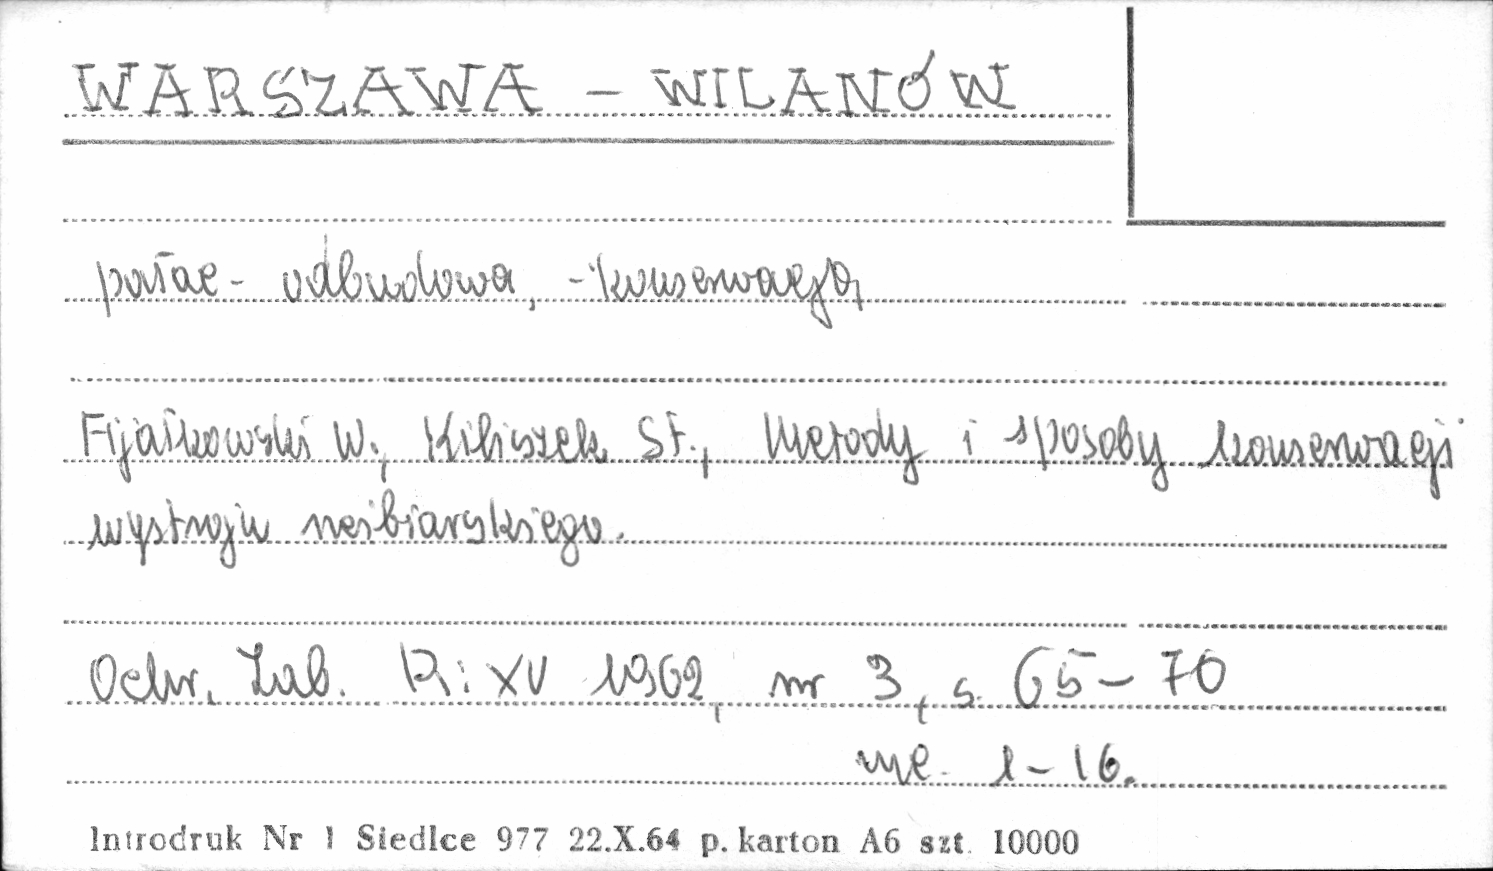 WARSZAWA – WILANÓW
pałac - odbudowa, - konserwacja
Fijałkowski W., Kiliszek St., Metody i sposoby konserwacji
wystroju rzeźbiarskiego.
Ochr. Zab. R: XV 1962, nr 3, s. 65 – 70
ryc. 1 – 16.
Introdruk Nr 1 Siedlce 977 22.X.64 p. karton A6 szt. 10000